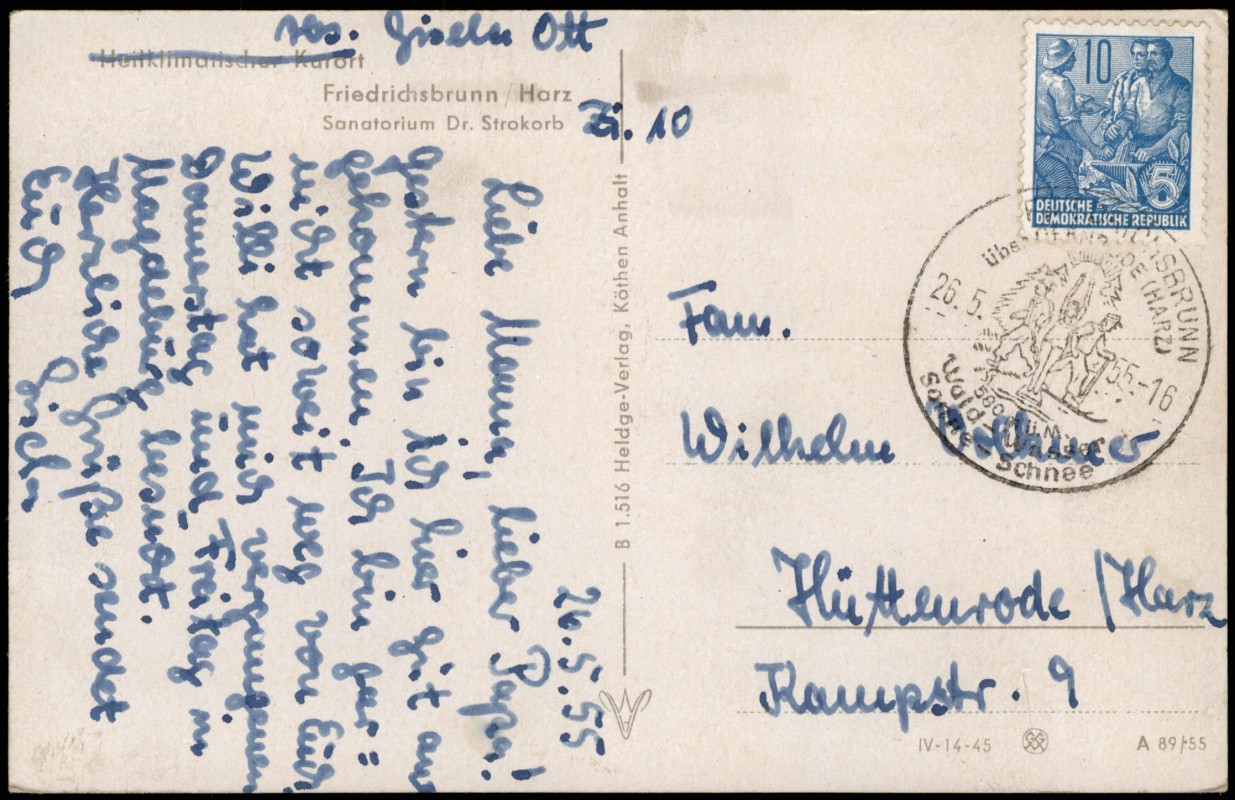 Abs. Gisela Ott
Heilklimatischer Kurort
Friedrichsbrunn / Harz
Sanatorium Dr. Strokorb
Zi. 10
26.5.55
Liebe Mamma, lieber Papa!
Gestern bin ich hier gut an
gekommen. Ich bin gar=
nicht so weit weg von Euch
Willi hat mich vergangenen
Donnerstag und Freitag in
Magdeburg besucht.
Herzliche Grüße sendet
Euch
B 1.516 Heldge-Verlag, Köthen Anhalt
10
5
DEUTSCHE
DEMOKRATISCHE REPUBLIK
26.5.55-16
580 m ü.M.
Wald - Wasser
Sonne - Schnee
Fam.
Wilhelm
Hüttenrode / Harz
Kampstr. 9
IV-14-45
A 89/55